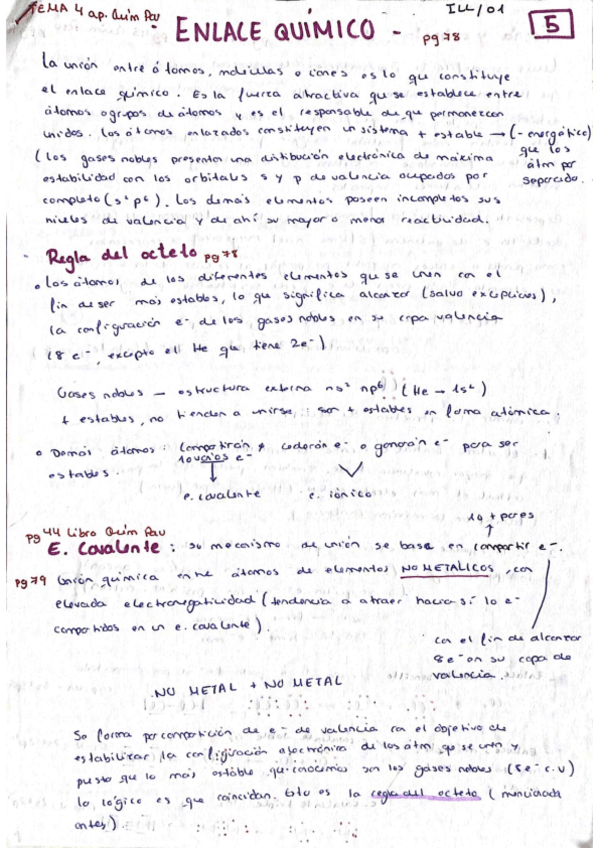 TEMA 4 ap. Quim Pau
ENLACE QUÍMICO - pg 78
ILL/01
5
La unión entre átomos, moléculas o iones es lo que constituye
el enlace químico. Es la fuerza atractiva que se establece entre
átomos o grupos de átomos y es el responsable de que permanezcan
unidos. Los átomos enlazados constituyen un sistema + estable → (- energético)
que los
átm por
separado.
(los gases nobles presentan una distibución electrónica de máxima
estabilidad con los orbitales s y p de valencia ocupados por
completo (s² p⁶). Los demás elementos poseen incompletos sus
niveles de valencia) y de ahí su mayor o menor reactividad.
Regla del octeto pg 78
• Los átomos de los diferentes elementos que se unen con el
fin de ser más estables, lo que significa alcanzar (salvo excepciones),
la configuración e⁻ de los gases nobles en su capa valencia
(8 e⁻, excepto el He que tiene 2e⁻)
Gases nobles — estructura externa ns² np⁶ (He — 1s²)
+ estables, no tienden a unirse, son + estables en forma atómica.
• Demás átomos: compartirán cederán e⁻ o ganarán e⁻ para ser
1 o varios e⁻
estables.
e. covalente e. iónico
pg 44 Libro Quím Pau
1 o + pares
E. Covalente: su mecanismo de unión se basa en compartir e⁻.
pg 79 Unión química entre átomos de elementos NO METALICOS, con
elevada electronegatividad (tendencia a atraer hacia sí lo e⁻
compartidos en un e. covalente).
con el fin de alcanzar
8 e⁻ en su capa de
valencia.
NO METAL + NO METAL
Se forma por compartición de e⁻ de valencia con el objetivo de
estabilizar la configuración electrónica de los átm q se unen y
puesto que lo más estable que conocemos son los gases nobles (8e⁻ c.v)
lo lógico es que coincidan. Esto es la regla del octeto (mencionada
antes).